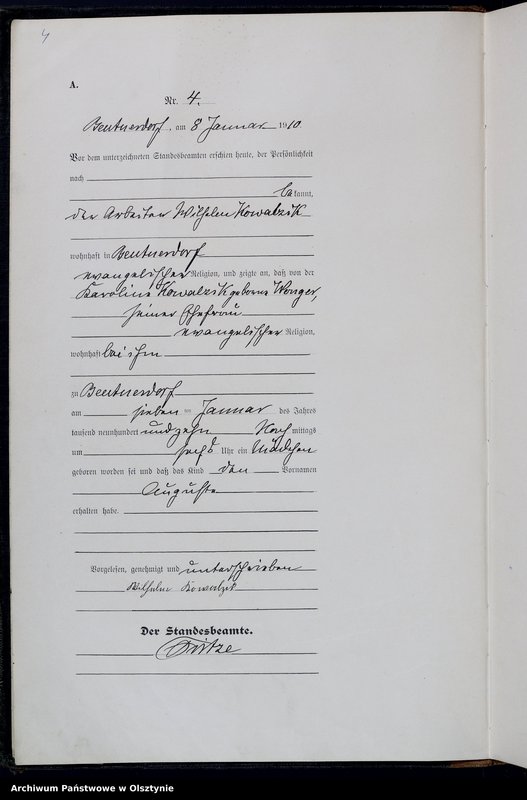 4
A.
Nr. 4.
Beutnerdorf, am 8 Januar 1910
Vor dem unterzeichneten Standesbeamten erschien heute, der Persönlichkeit
nach
bekannt,
der Arbeiter Wilhelm Kowalzik
wohnhaft in Beutnerdorf
evangelischer Religion, und zeigte an, daß von der
Karoline Kowalzik geborene
seiner Ehefrau
evangelischer Religion,
wohnhaft bei ihm
zu Beutnerdorf
am sieben ten Januar des Jahres
tausend neunhundert undzehn Nach mittags
um sechs Uhr ein Mädchen
geboren worden sei und daß das Kind den Vornamen
Auguste
erhalten habe.
Vorgelesen, genehmigt und unterschrieben
Wilhelm Kowalzik
Der Standesbeamte.
Archiwum Państwowe w Olsztynie